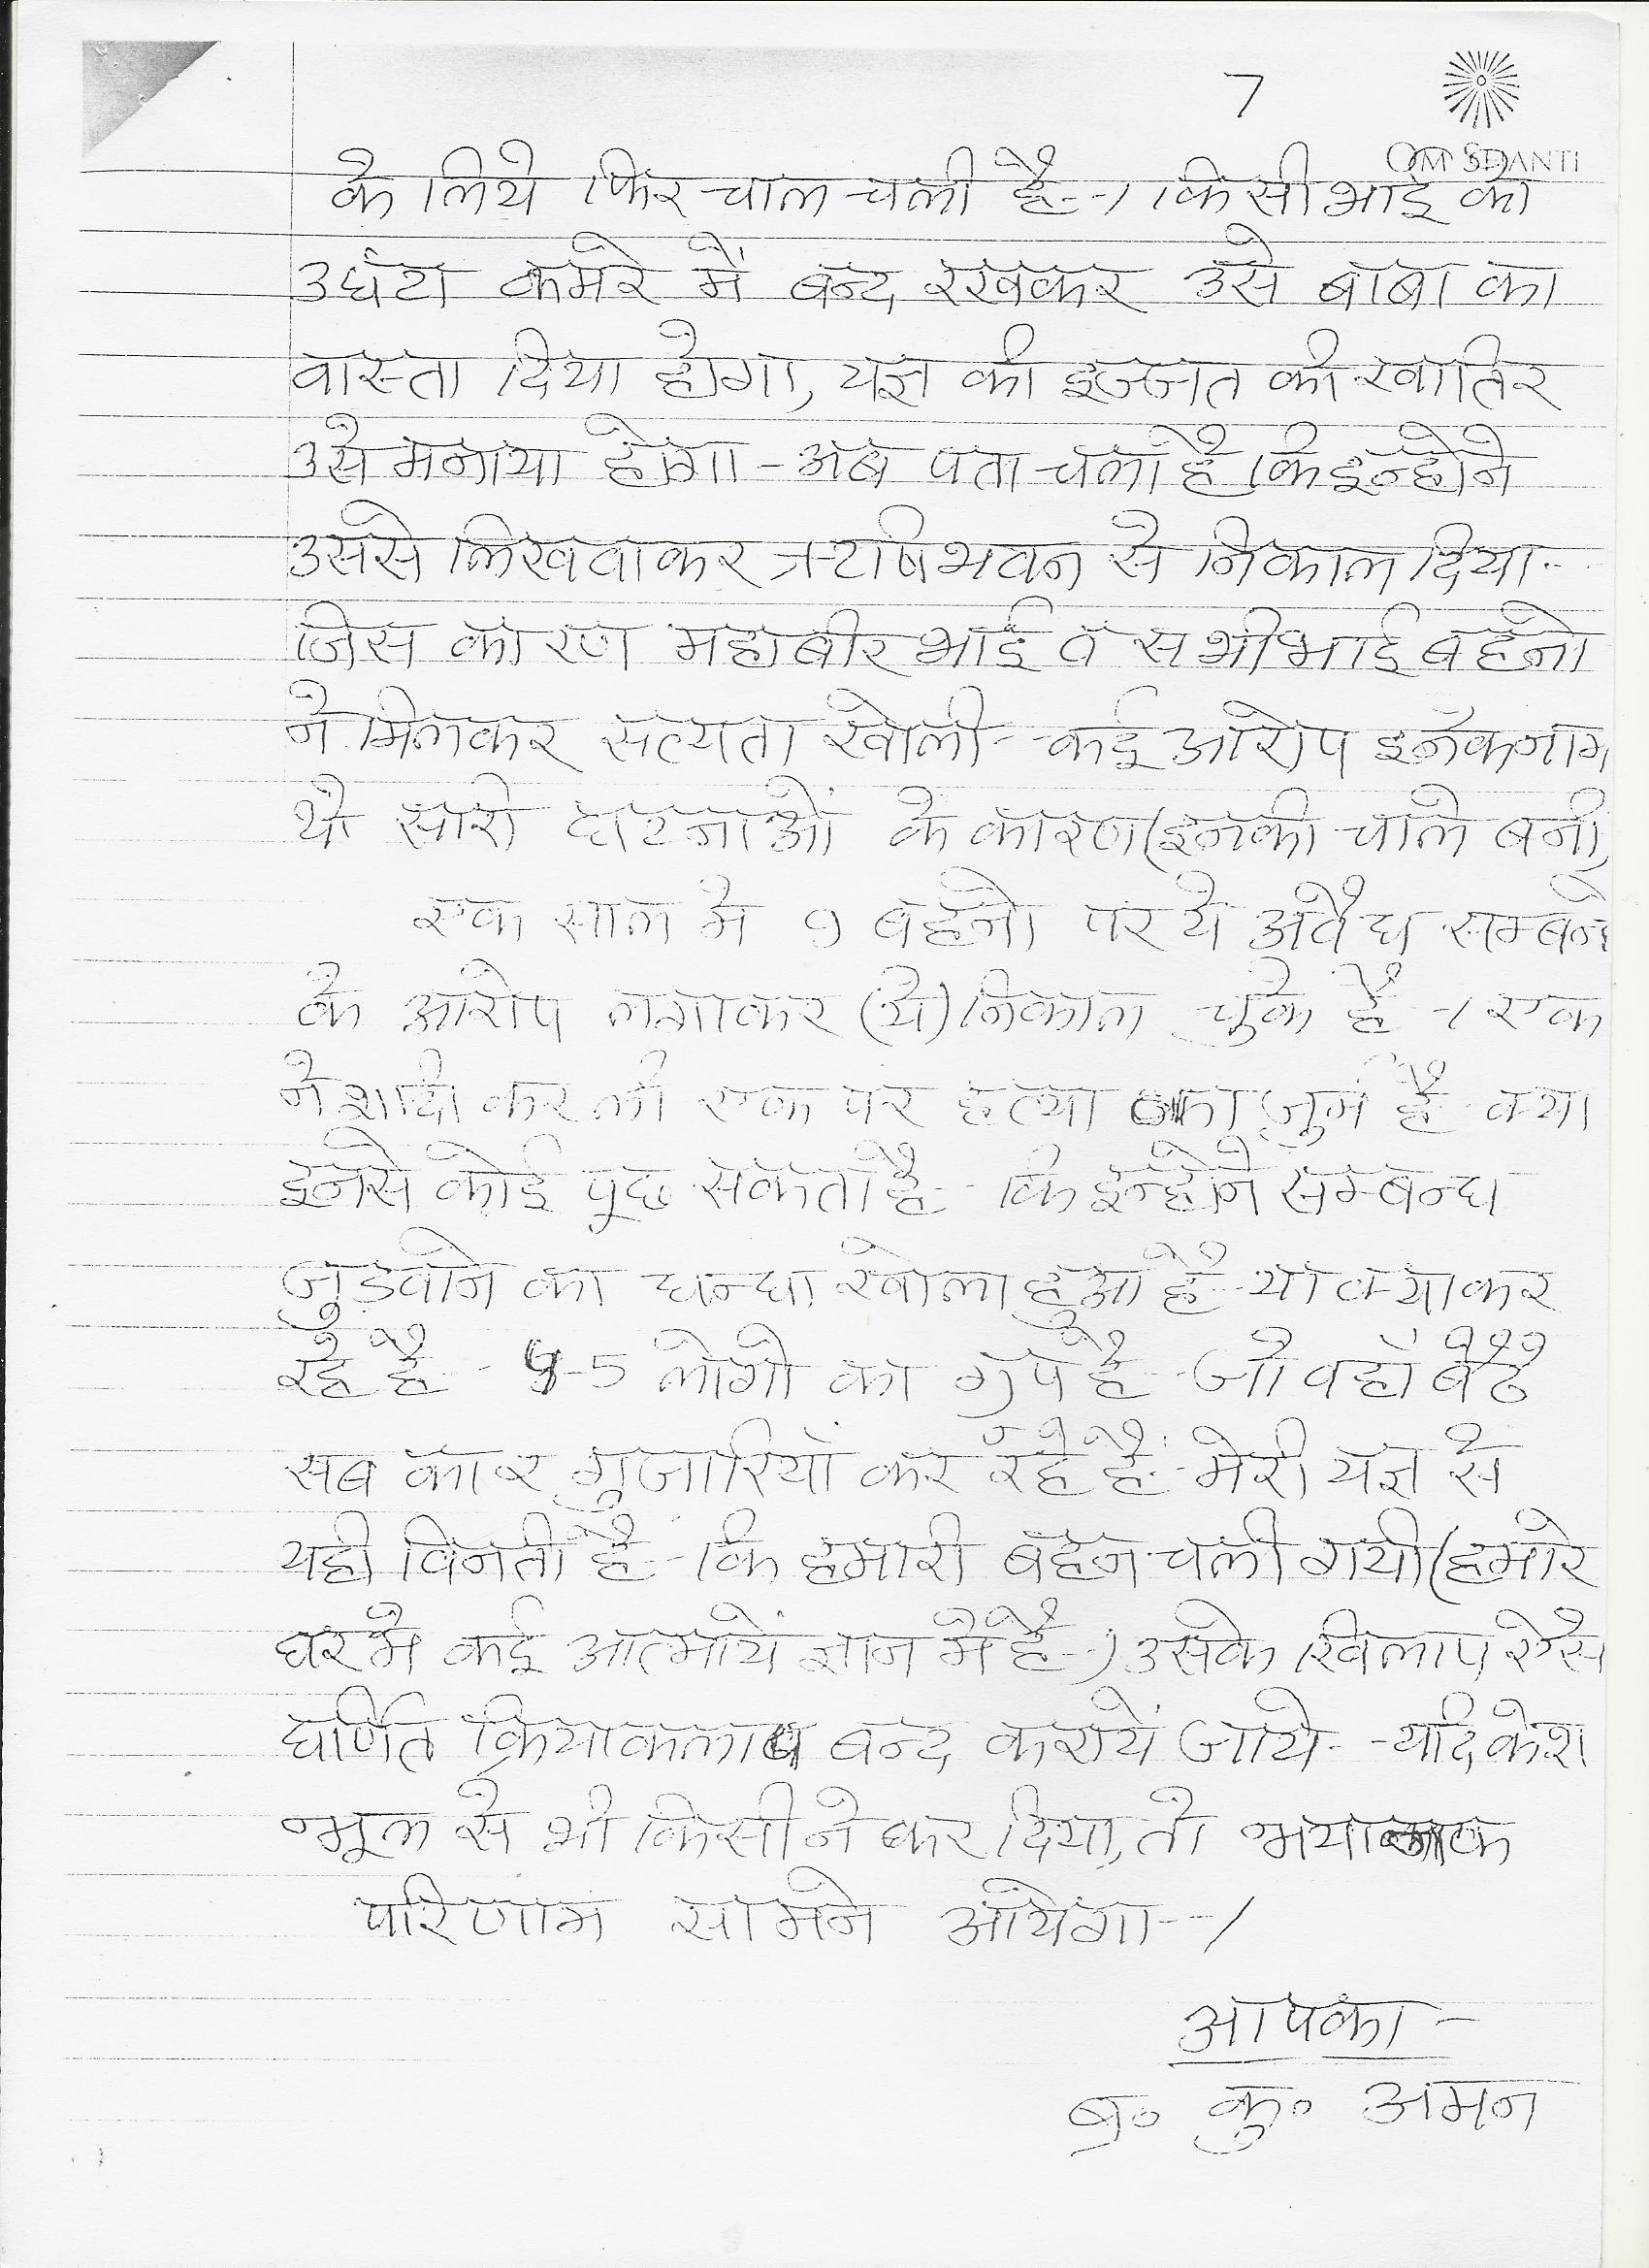 7
OM SHANTI
के लिये फिर चाल चली है-। किसी भाई को
3 घंटा कमरे में बन्द रखकर उसे बाबा का
वास्ता दिया होगा, यज्ञ की इज्जत की खातिर
उसे मनाया होगा - अब पता चला है कि इन्होने
उससे लिखवाकर ऋषि भवन से निकाल दिया--
जिस कारण महाबीर भाई व सभी भाई बहनो
ने मिलकर सत्यता खोली-- कई आरोप इनके नाम
थे सारी घटनाओं के कारण (इनकी चाले बनी)
एक साल मे 9 बहनो पर ये अवैध सम्बन्धो
के आरोप लगाकर (ये) निकाल चुके है -। एक
ने शादी कर ली एक पर हत्या का जुर्म है- क्या
इनसे कोई पूछ सकता है - कि इन्होने सम्बन्ध
जुड़वाने का धन्धा खोला हुआ है- या क्या कर
रहे है - 4-5 लोगो का ग्रुप है- जो वहाँ बैठे
सब कार गुजारियाँ कर रहे हैं- मेरी यज्ञ से
यही विनती है- कि हमारी बहन चली गयी (हमारे
घर मे कई आत्मायें ज्ञान मे है-) उसके खिलाप ऐसे
घर्णित क्रियाकलाप बन्द करायें जाये-- यदि केश
भूल से भी किसी ने कर दिया, तो भयानक
परिणाम सामने आयेगा--।
आपका -
ब्र० कु० अमन